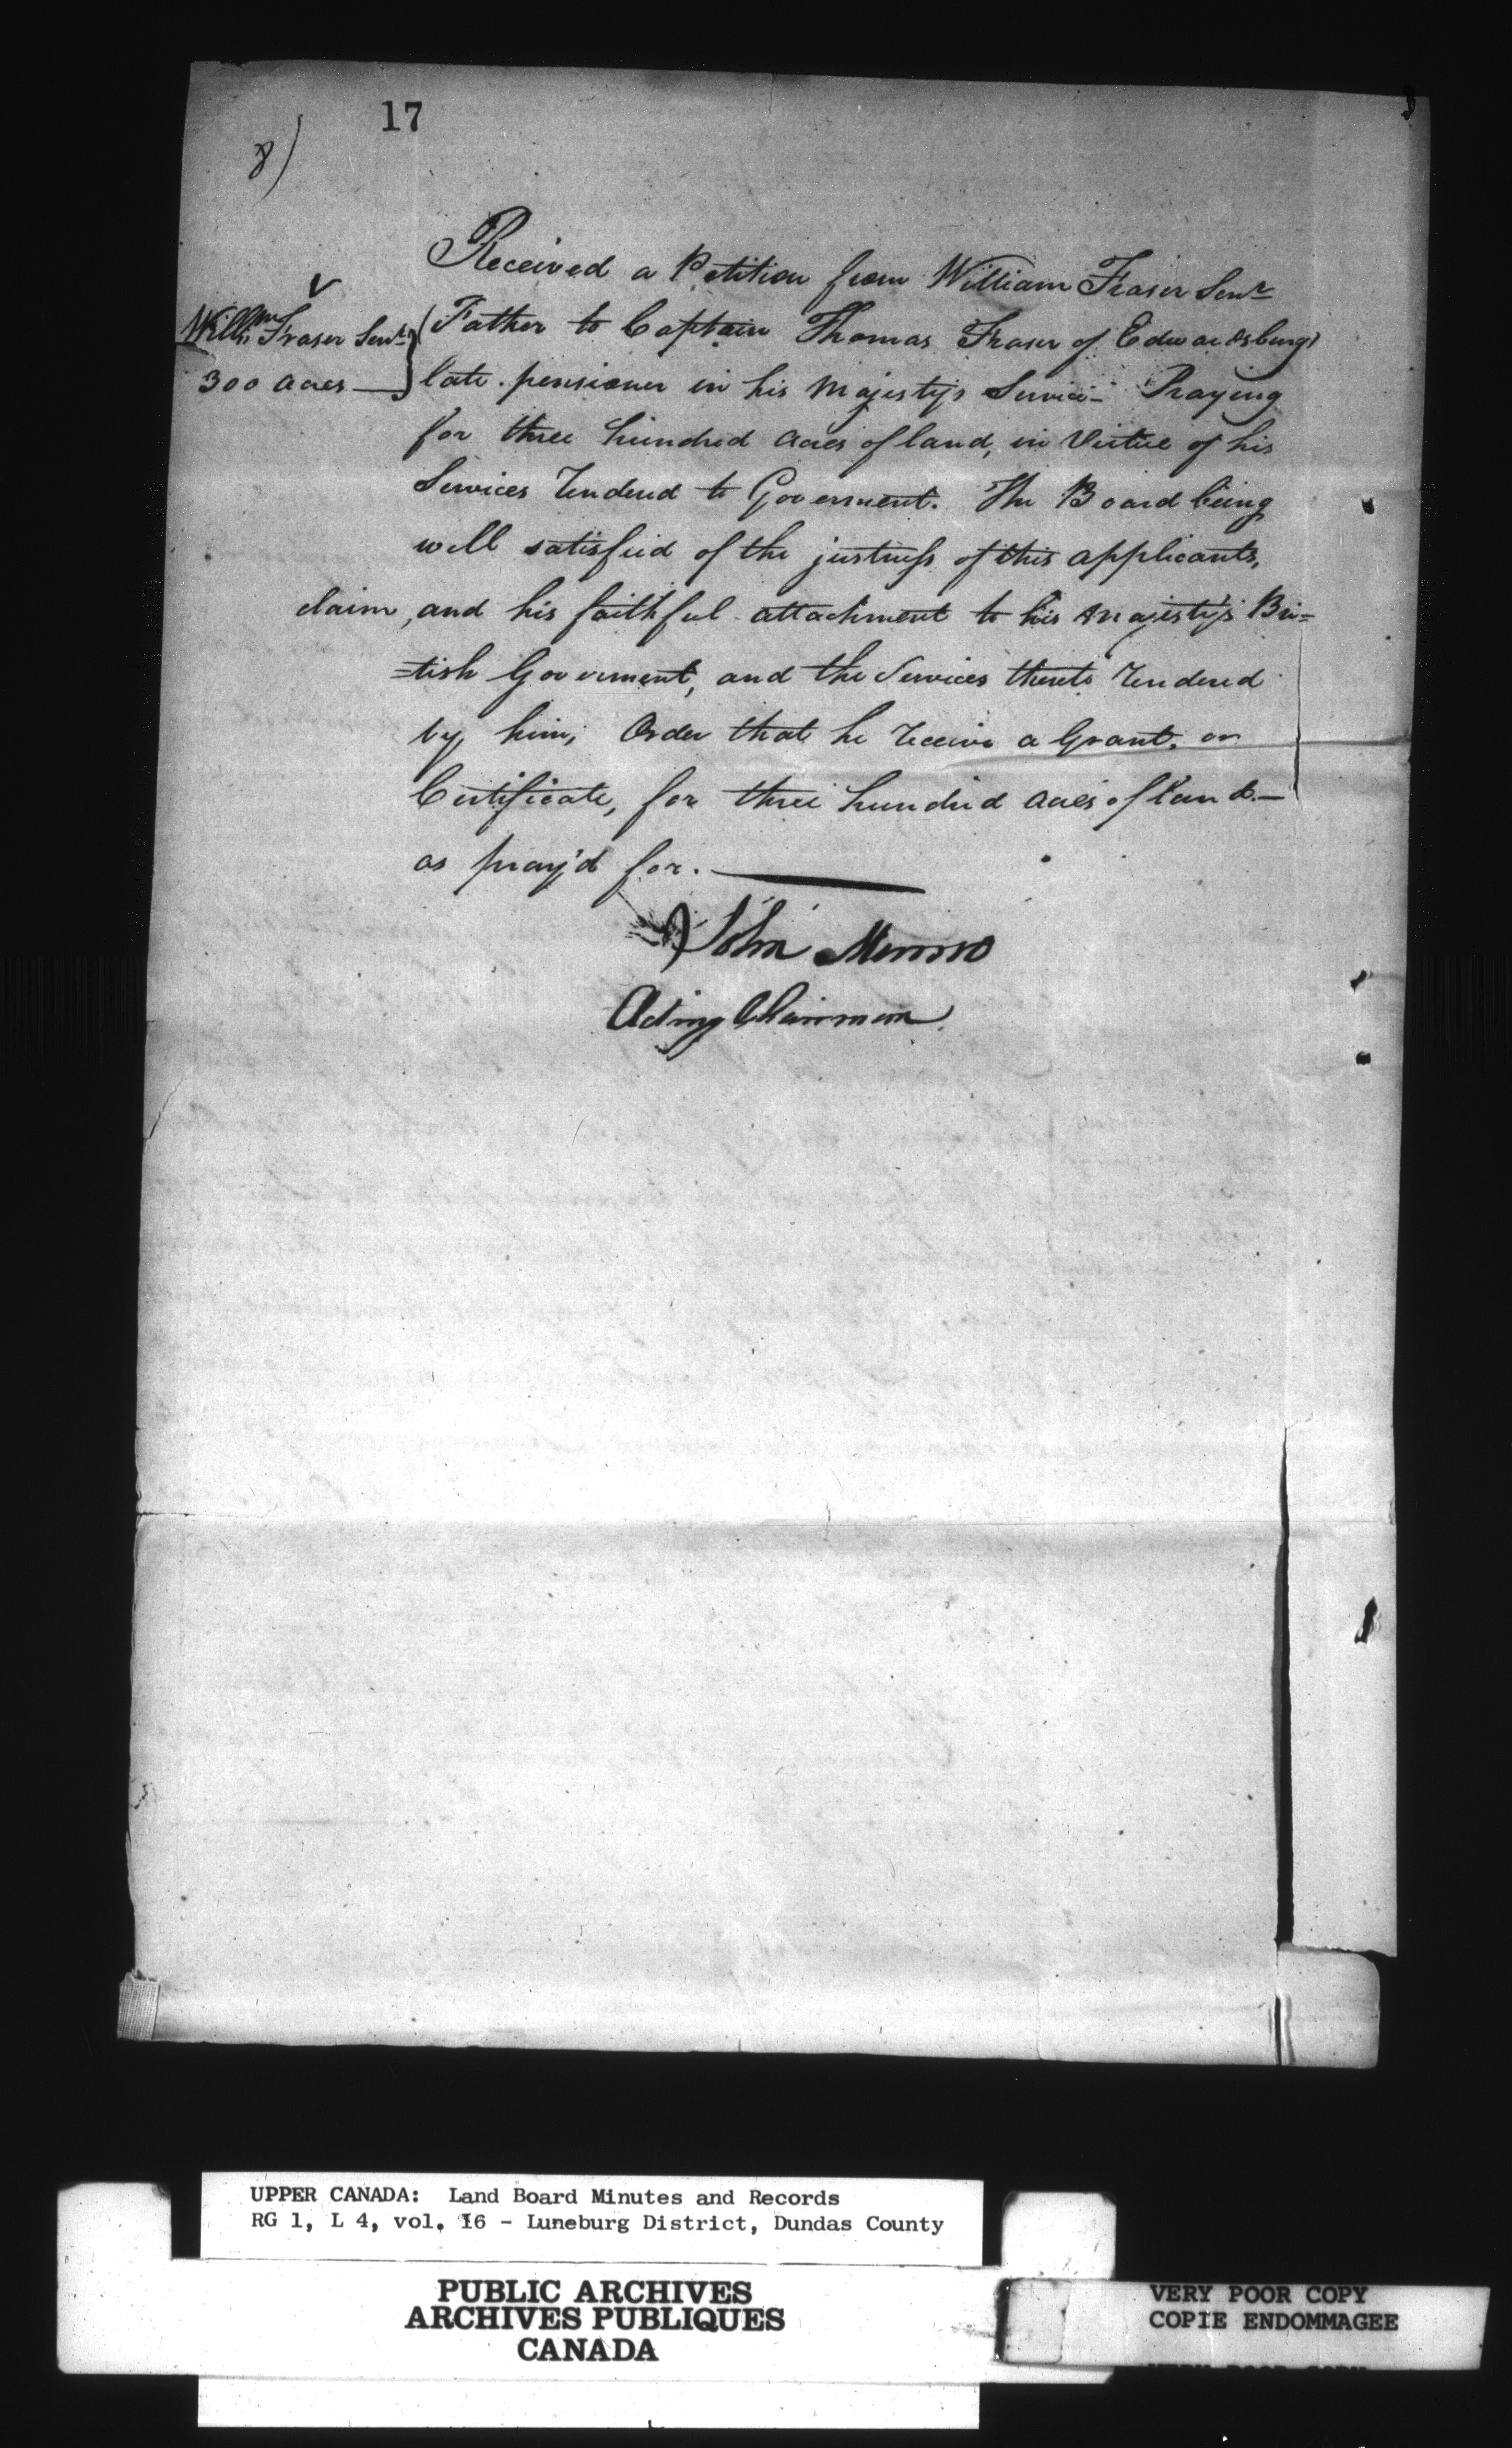 17
8)
Received a Petition from William Fraser Senr
Willm Fraser Senr
300 acres
Father to Captain Thomas Fraser of Edwardsburgh
late pensioner in his Majesty's Service - Praying
for three hundred acres of land, in Virtue of his
Services Rendered to Goverment. The Board being
well satisfied of the justness of this applicants,
claim, and his faithful attachment to his Majesty's Bri=
=tish Goverment, and the Services thereto Rendered
by him; Order that he receive a Grant. or
Certificate, for three hundred acres of land.—
as pray'd for.
John Munro
Acting Chairman.
UPPER CANADA: Land Board Minutes and Records
RG 1, L 4, vol. 16 - Luneburg District, Dundas County
PUBLIC ARCHIVES
ARCHIVES PUBLIQUES
CANADA
VERY POOR COPY
COPIE ENDOMMAGEE